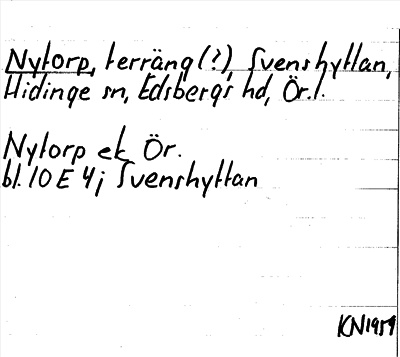 Nytorp, terräng (?), Svenshyttan,
Hidinge sn, Edsbergs hd, Ör. l.
Nytorp ek Ör.
bl. 10 E 4j Svenshyttan
KN1959